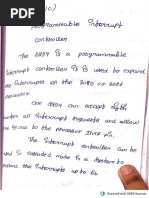 IC)
programmable Interrupt
controller
The 8259 is a programmable
Interrupt controller It is used to expand
the Interrupts on the 8085 or 8086
processor.
One 8259 can accept eight
Interrupt requests and allow
one to the processor INTR pin.
The Interrupt controller can be
used in cascaded mode in a system to
expand the Interrupts up to 64.
Scanned with OKEN Scanner